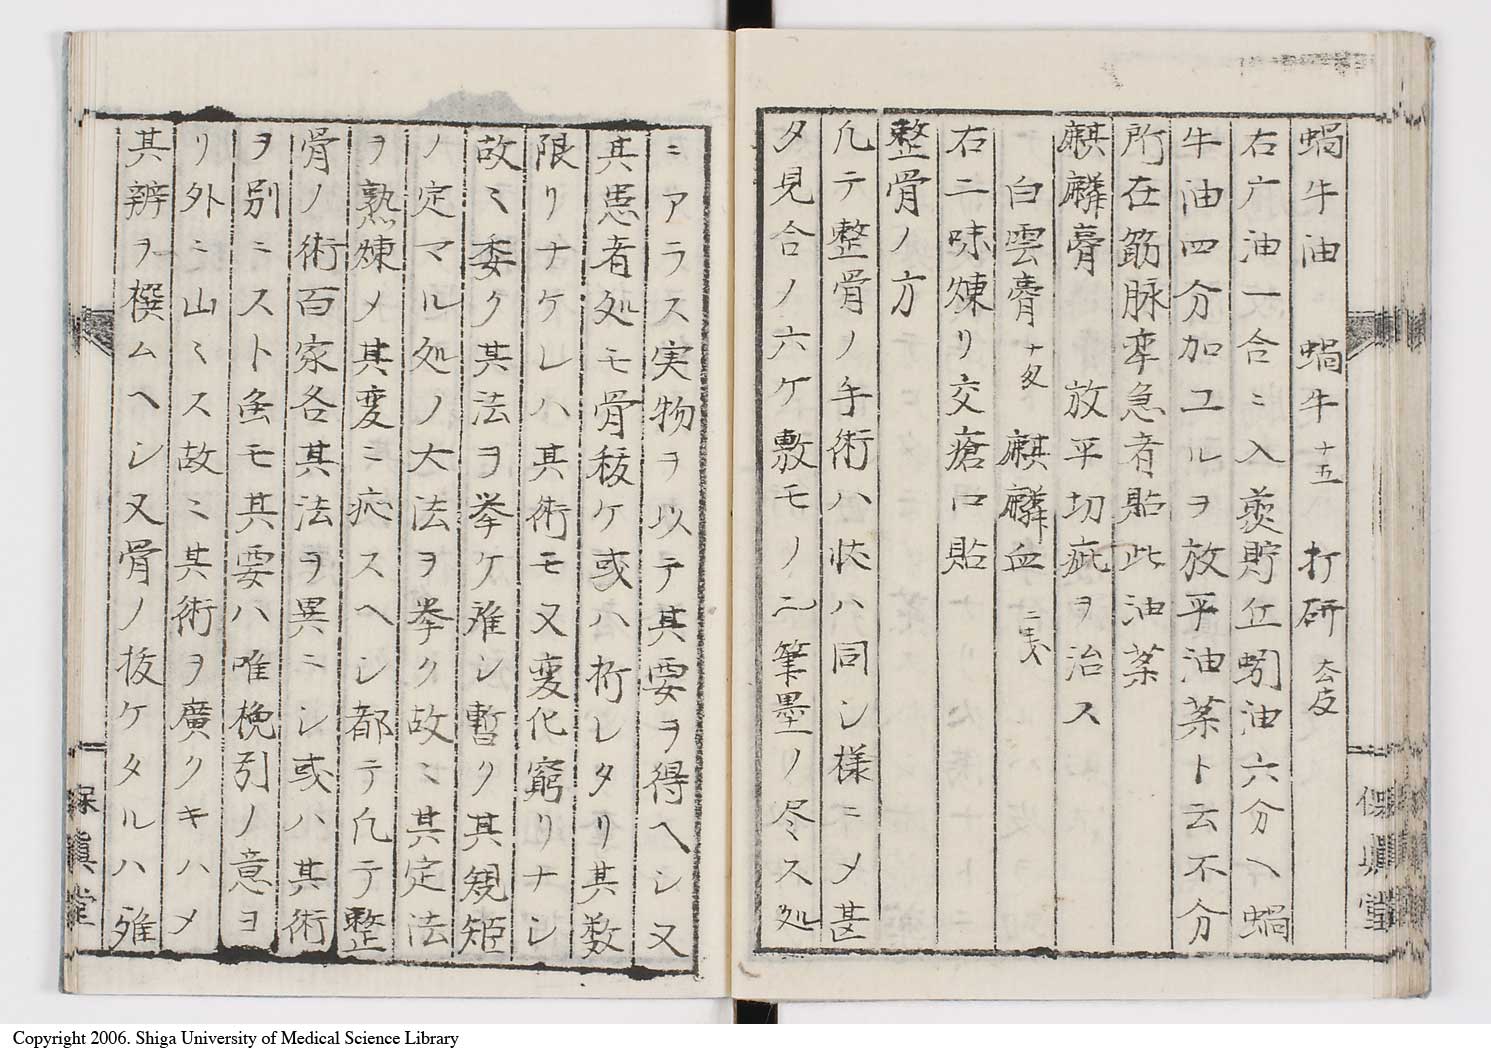 蝸牛油 蝸牛十五 打研 去皮
右广油一合ニ入煑貯丘蚓油六分入蝸
牛油四分加エルヲ放平油薬ト云不分
所在筋脉牽急者貼此油薬
麒麟膏 放平切疵ヲ治ス
白雲膏 十匁 麒麟血 二匁
右二味煉リ交瘡口貼
整骨ノ方
凢テ整骨ノ手術ハ恠ハ同シ様ニメ甚
タ見合ノ六ケ敷モノ二筆墨ノ尽ス処
ニアラス実物ヲ以テ其要ヲ得ヘシ又
其患者処モ骨抜ケ或ハ折レタリ其数
限リナケレハ其術モ又変化窮リナシ
故ミ委ク其法ヲ挙ケ难シ暫ク其規矩
ノ定マル処ノ大法ヲ挙ク故ミ其定法
ヲ熟煉メ其変ミ応スヘシ都テ凢テ整
骨ノ術百家各其法ヲ異ニシ或ハ其術
ヲ別ニスト雖モ其要ハ唯挽引ノ意ヨ
リ外ミ山ミス故ミ其術ヲ廣クキハメ
其辨ヲ撰ムヘシ又骨ノ抜ケタルハ雖
保真堂
保真堂
Copyright 2006. Shiga University of Medical Science Library